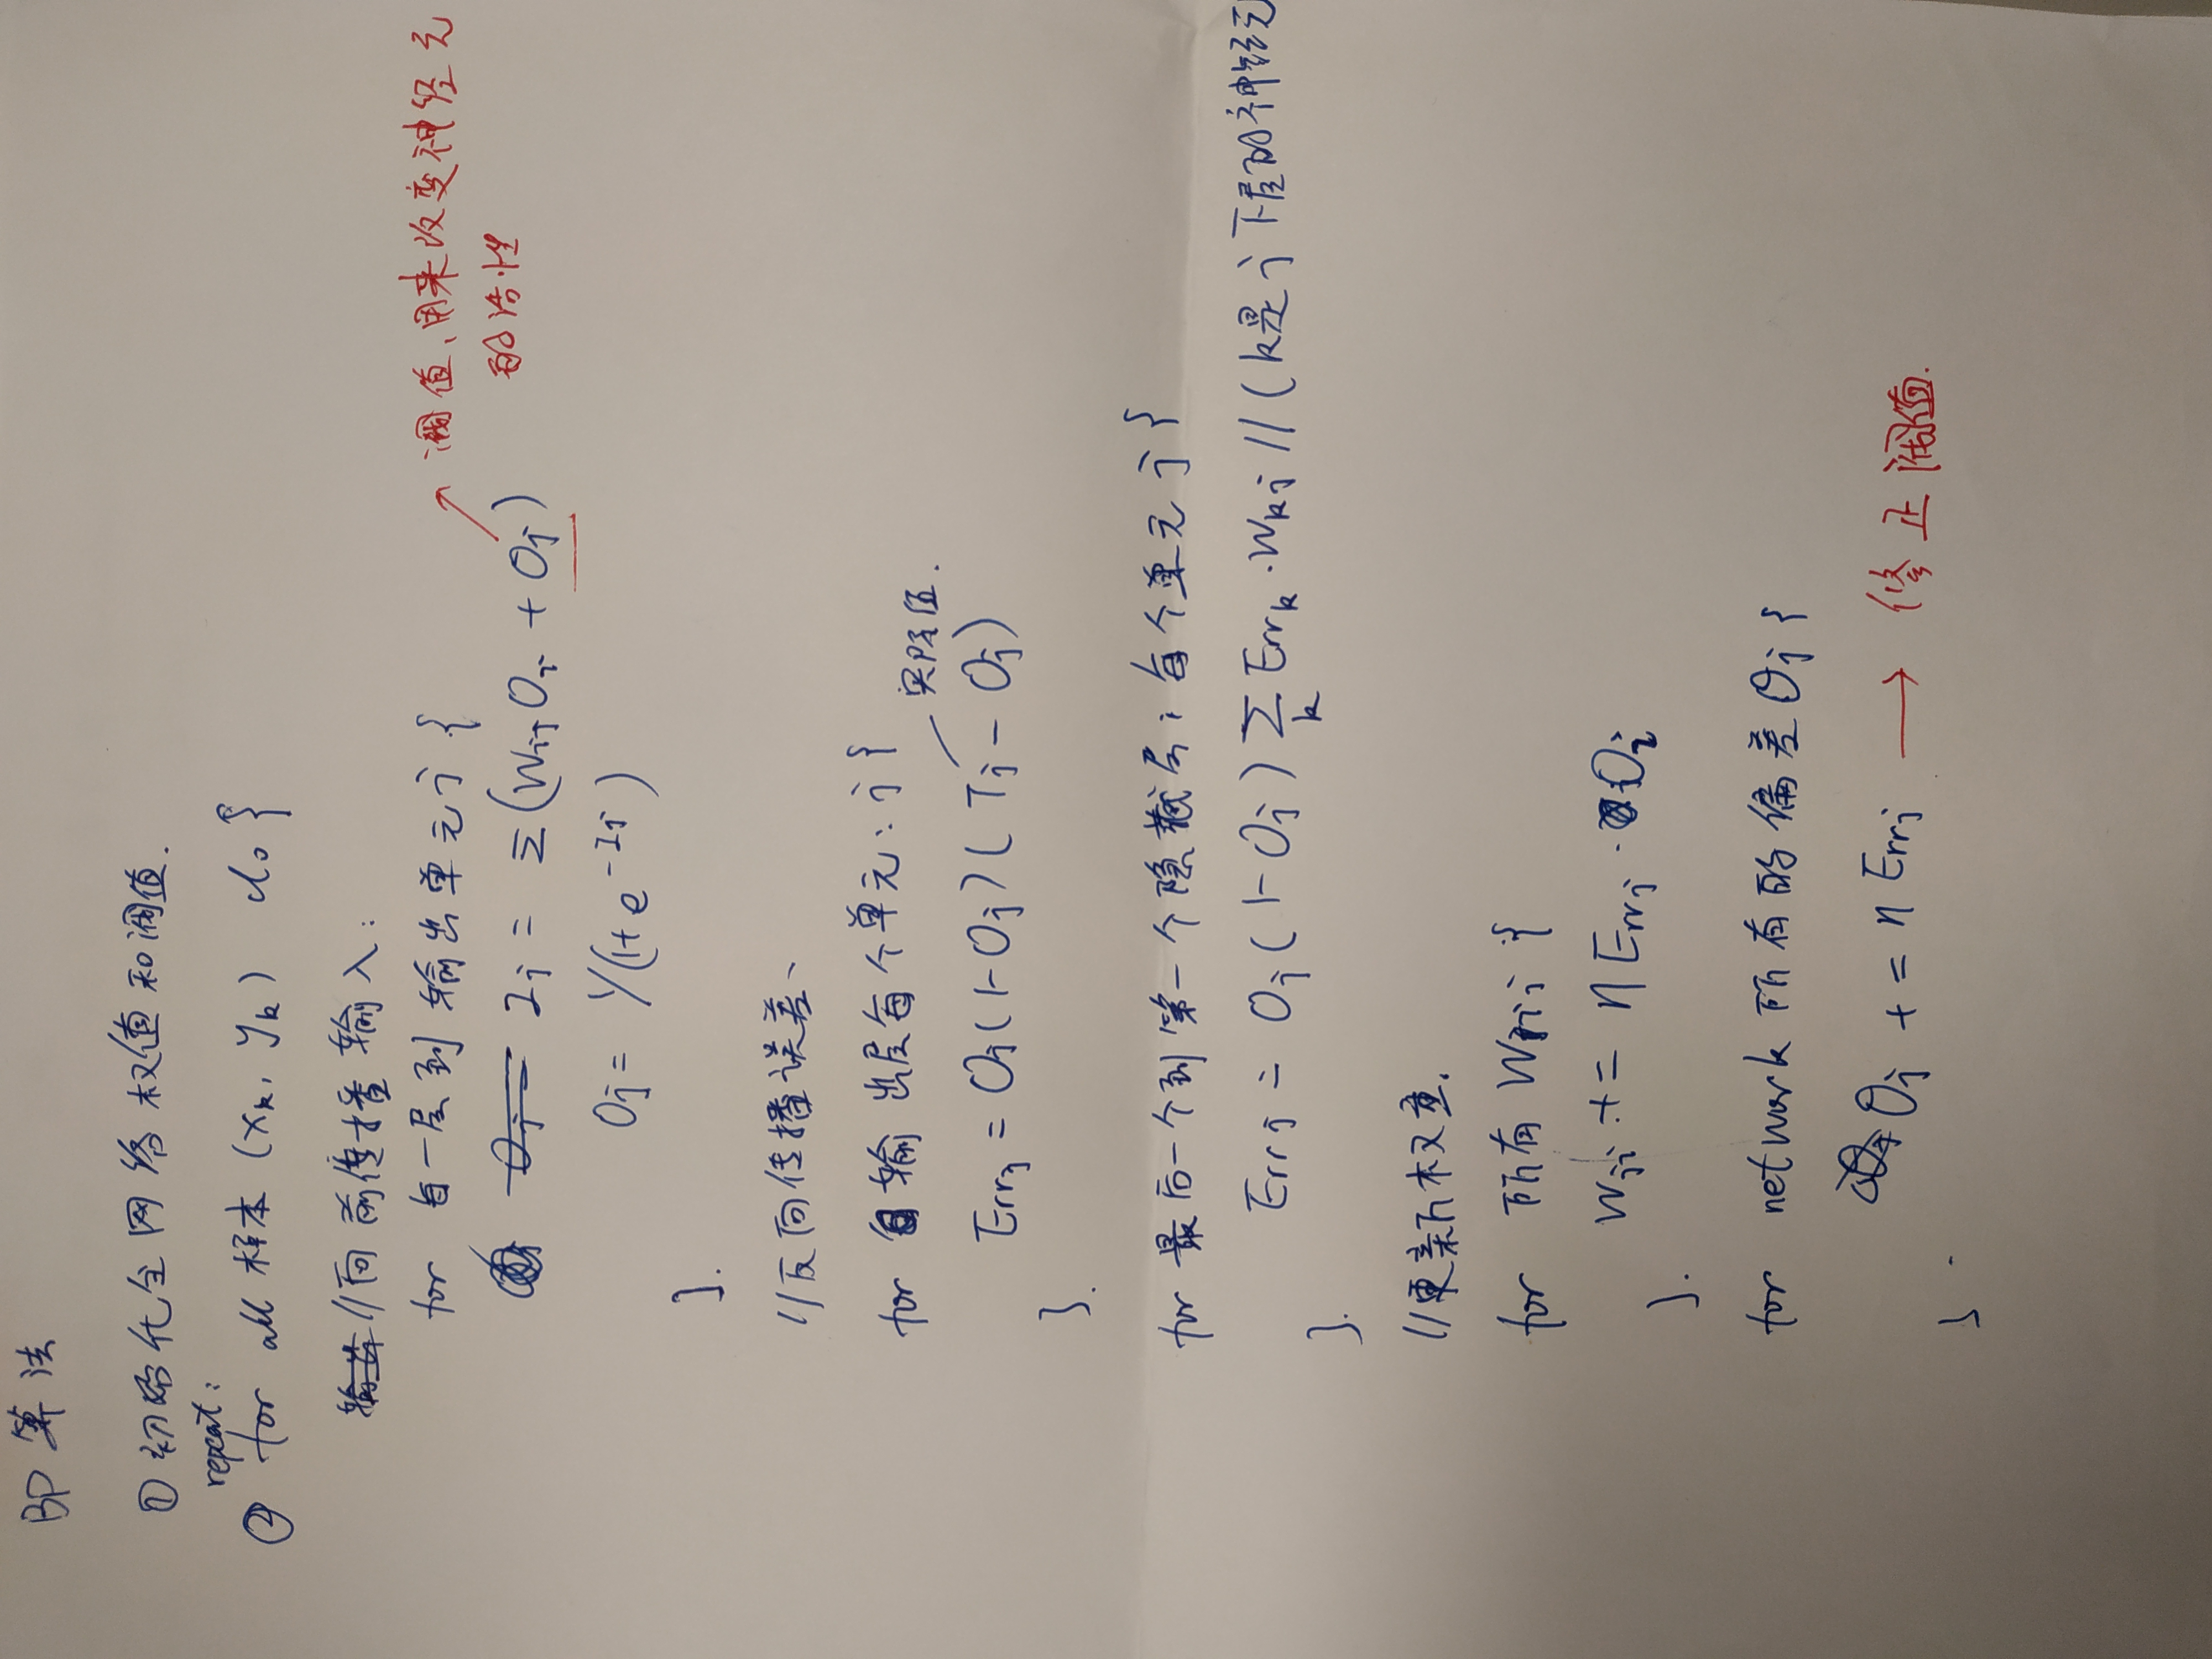 BP 算法
① 初始化全网络权值和阈值.
repeat:
② for all 样本 (xk, yk) do {
//向前传播输入:
for 每一层到输出单元 j {
Ij = Σ(Wij Oi + Θj)
阈值、用来改变神经元
的活性
Oj = 1/(1+e^-Ij)
}.
//反向传播误差、
for 输出层每个单元: j {
实际值.
Errj = Oj(1-Oj)(Tj - Oj)
}.
for 最后一个到第一个隐藏层; 每个单元 j {
Errj = Oj(1-Oj) Σk Errk·Wkj //(k是j下层的神经元
}.
//更新权重.
for 所有 Wij {
Wji += η Errj · Oi
}.
for network 所有的偏差 Θj {
Θj += η Errj → 修正阈值.
}.